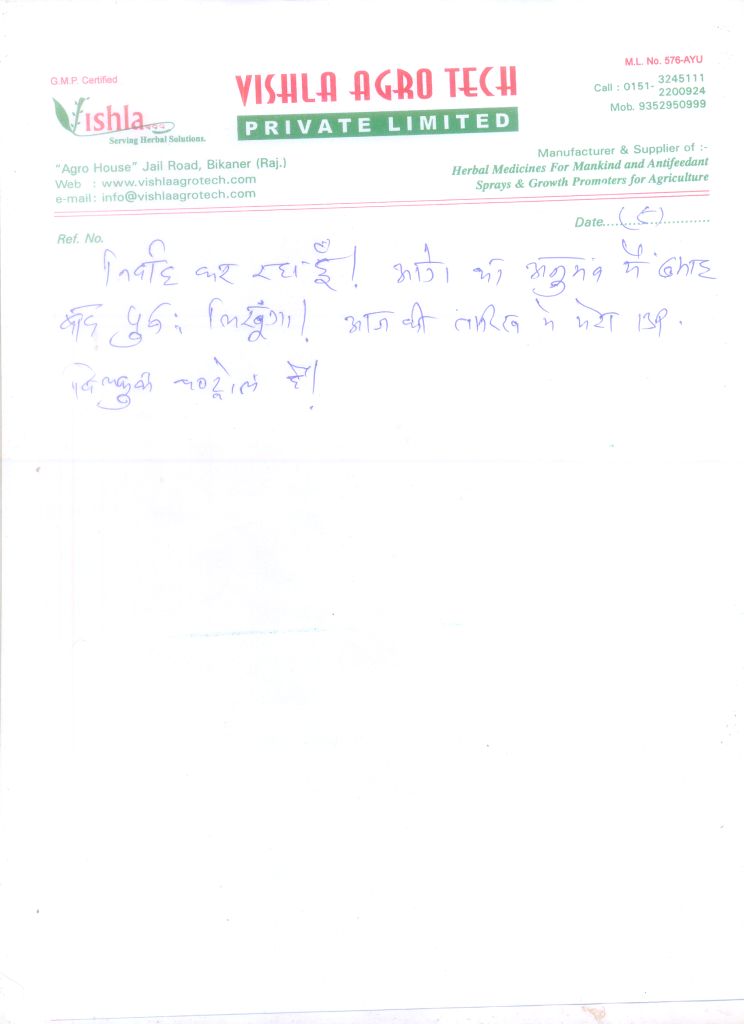 M.L. No. 576-AYU
G.M.P. Certified
VISHLA AGRO TECH
PRIVATE LIMITED
Call : 0151- 3245111
2200924
Mob. 9352950999
Vishla
Serving Herbal Solutions.
"Agro House" Jail Road, Bikaner (Raj.)
Web : www.vishlaagrotech.com
e-mail: info@vishlaagrotech.com
Manufacturer & Supplier of :-
Herbal Medicines For Mankind and Antifeedant
Sprays & Growth Promoters for Agriculture
Ref. No.
Date......................
निर्वाह कर रहा हूँ! आगे का अनुभव मैं माह
बाद पुनः लिखूंगा! आज की तारिख मे मेरा B.P.
बिल्कुल कण्ट्रोल है!